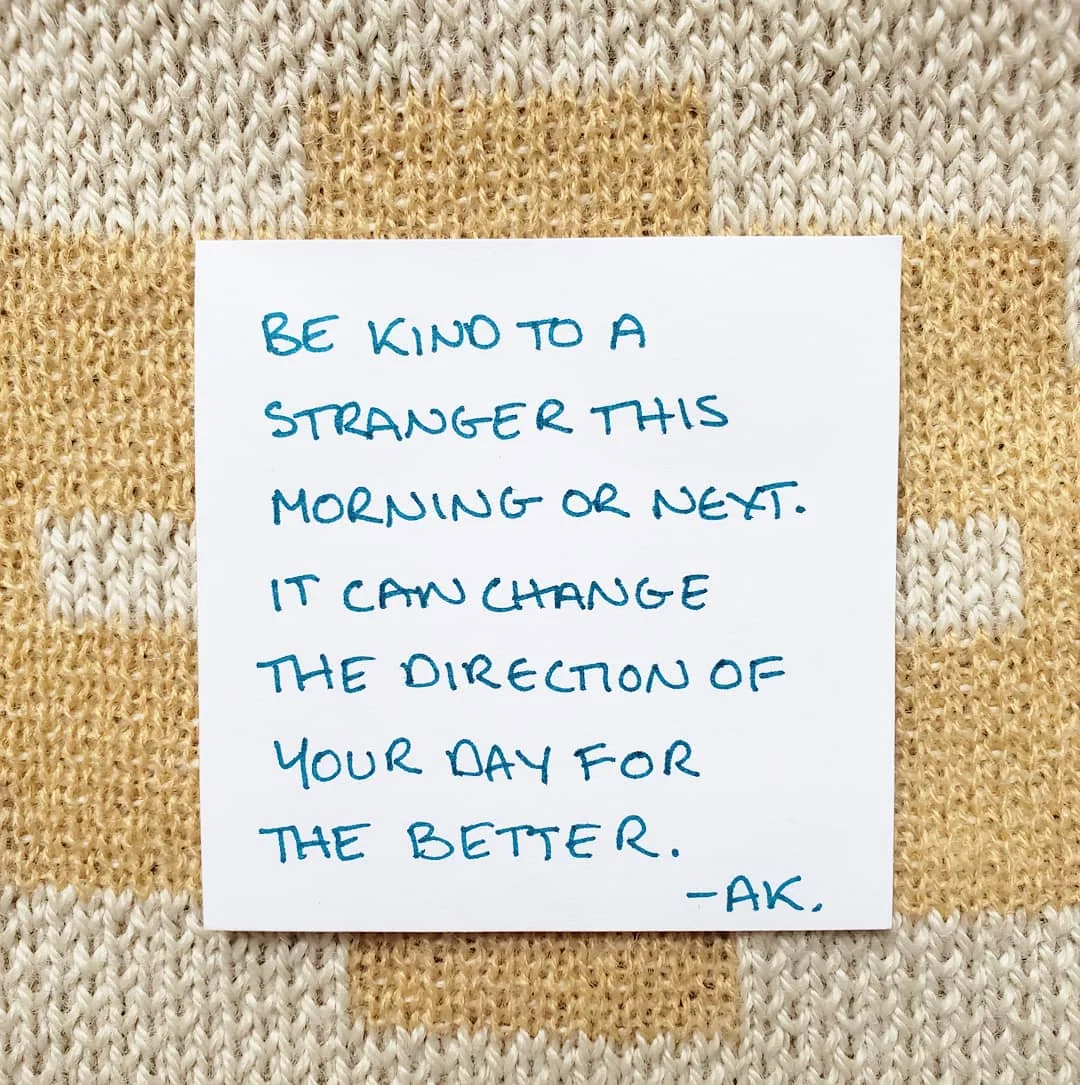 BE KIND TO A
STRANGER THIS
MORNING OR NEXT.
IT CAN CHANGE
THE DIRECTION OF
YOUR DAY FOR
THE BETTER.
-AK.